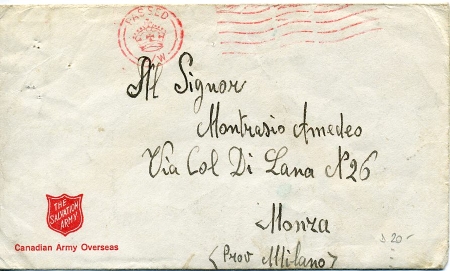 PASSED
P/W.
Al Signor
Montrasio Amedeo
Via Col Di Lana N 26
Monza
(Prov Milano)
THE
SALVATION
ARMY
Canadian Army Overseas
$ 20-